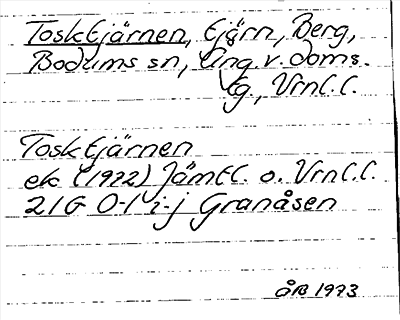 Tosktjärnen, tjärn, Berg,
Bodums sn, Ång. v. doms.
tg, Vrnl.l.
Tosktjärnen
ek (1922) Jämtl. o. Vrnl.l.
21G 0-1 i-j Granåsen
ÅB 1973